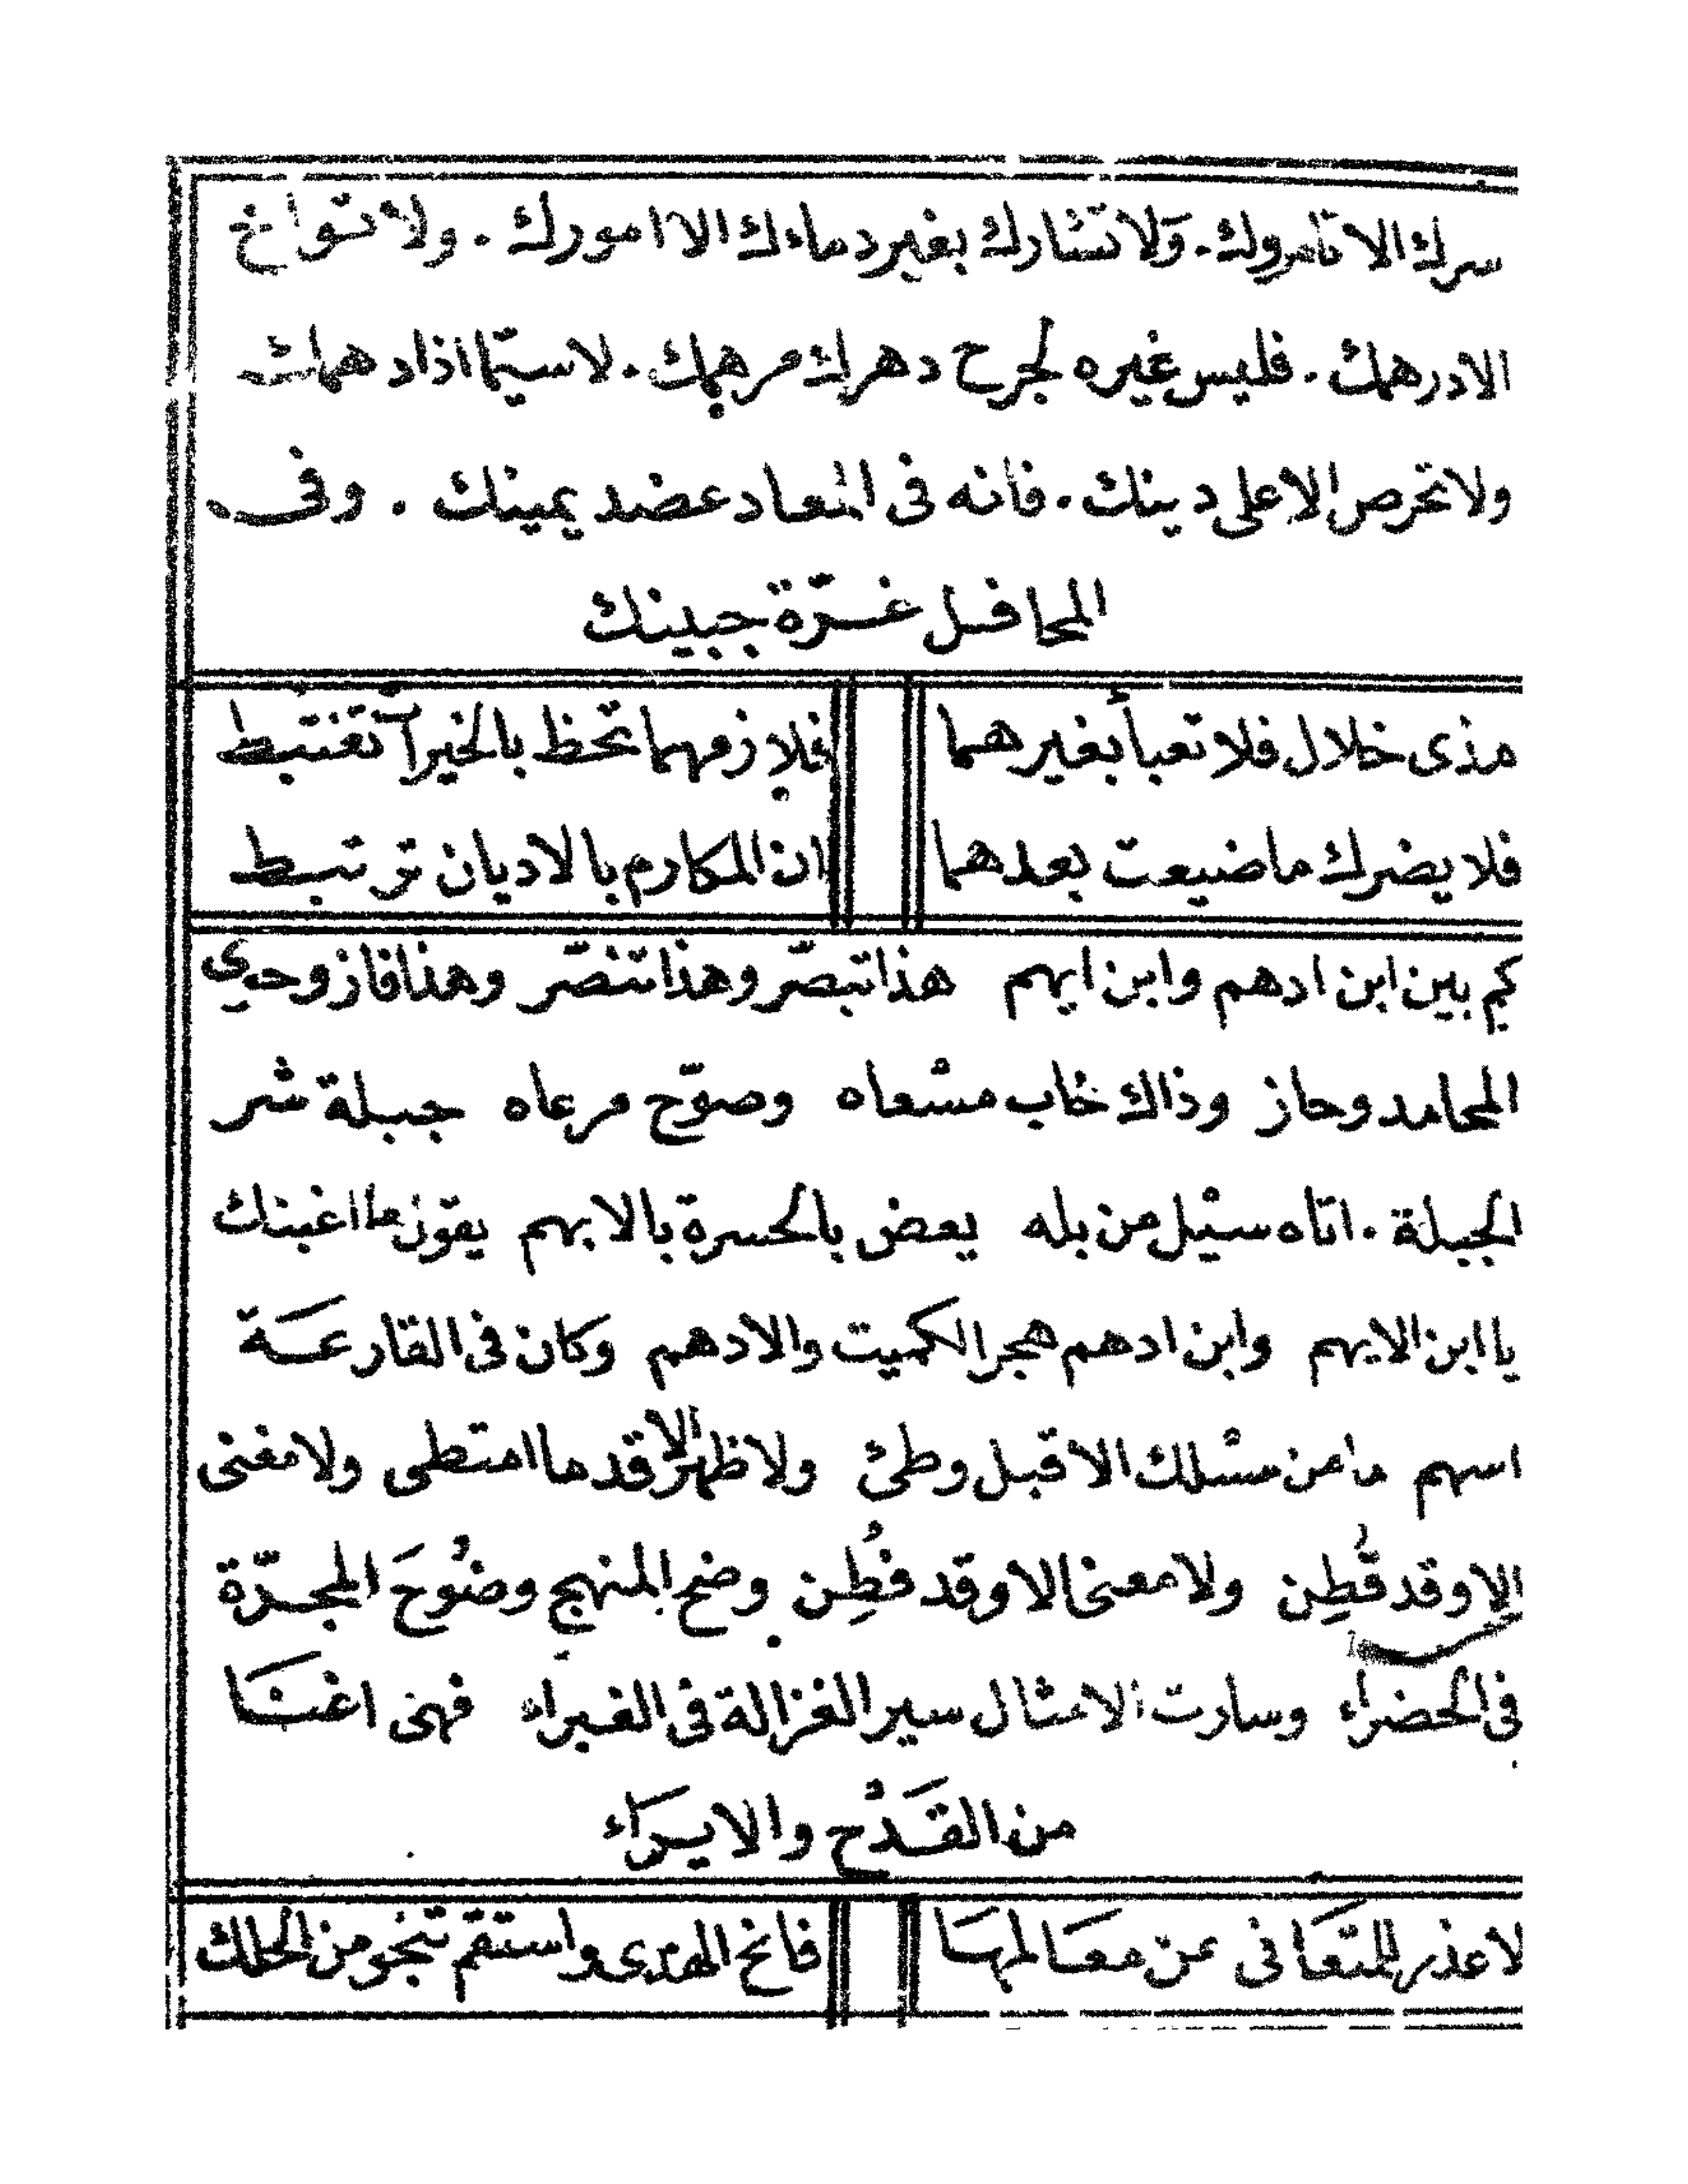 سرك الا تامروك. وَلا تشارك بغير دماءك الا امورك. ولا تواخ
الا درهمك. فليس غيره لجرح دهرك مرهمك. لا سيّما اذاد همك
ولا تحرص الا على دينك. فانه فى المعاد عضد يمينك. وفى
المحافل غرّة جبينك
هذى خلال فلا تعبأ بغيرهما فلازمهما تحظ بالخير آ تغتبط
فلا يضرك ما ضيعت بعدهما ان المكارم بالاديان ترتبط
كم بين ابن ادهم وابن ايهم هذا تبصّر وهذا تنصّر وهذا فاز وحوى
المحامد وحاز وذاك خاب مسْعاه وصوّح مرعاه جبلة شر
الجبلة. اتاه سيْل من بله يعض بالحسرة بالابهم يقول ما اغبنك
يا ابن الايهم وابن ادهم هجر الكميت والادهم وكان فى القارعَة
اسهم ما من مسْلك الا قبل وطئ ولا ظهر الا قد ما امتطى ولا مغنى
الا وقد قُطِن ولا معنى الا وقد فُطِن وضح المنهج وضُوحَ المجرّة
فى الخضراء وسارت الامثال سير الغزالة فى الغبراء فهى اغنَا
من القَدْح والايرَاء
لا عذر للمتعَانى عن معَالمهَا فانخ الهدى واستقم تنجو من الحلك